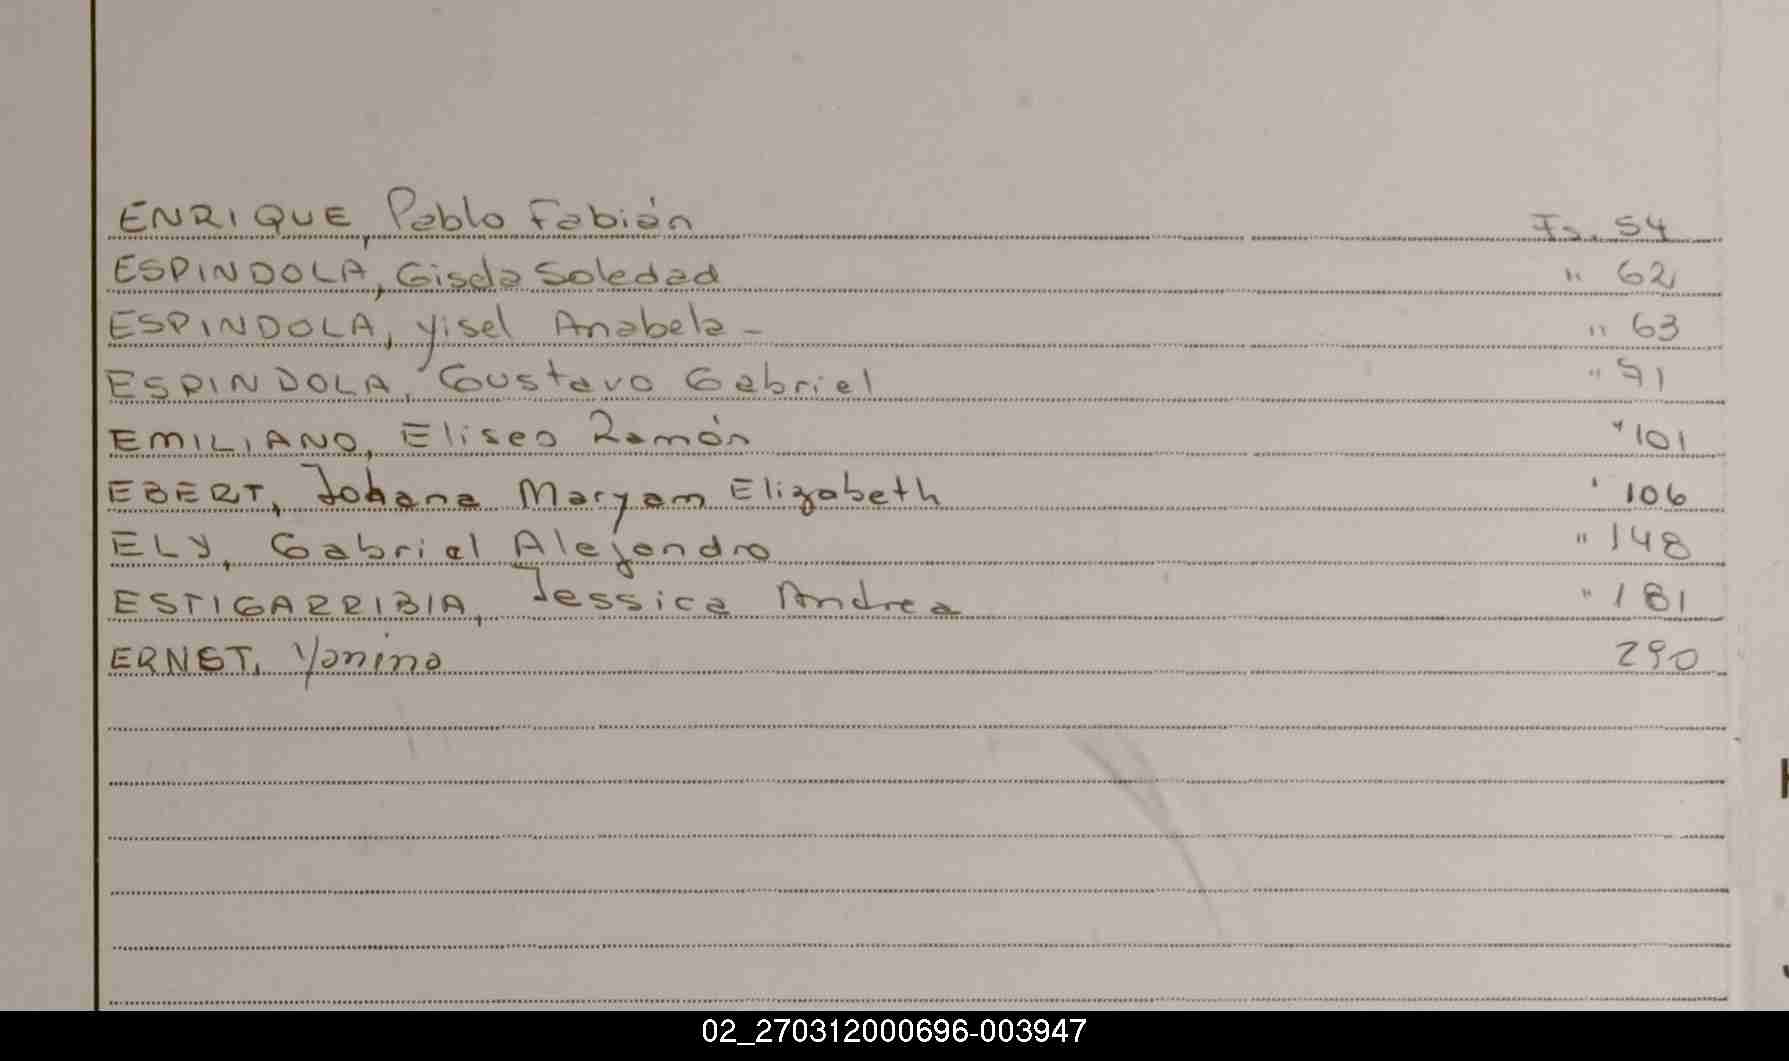 ENRIQUE, Pablo Fabián Fs. 54
ESPINDOLA, Gisela Soledad " 62
ESPINDOLA, Yisel Anabela - " 63
ESPINDOLA, Gustavo Gabriel " 71
EMILIANO, Eliseo Ramón " 101
EBERT, Johana Maryam Elizabeth ' 106
ELY, Gabriel Alejandro " 148
ESTIGARRIBIA, Jessica Andrea " 181
ERNST, Yanina 290
02_270312000696-003947